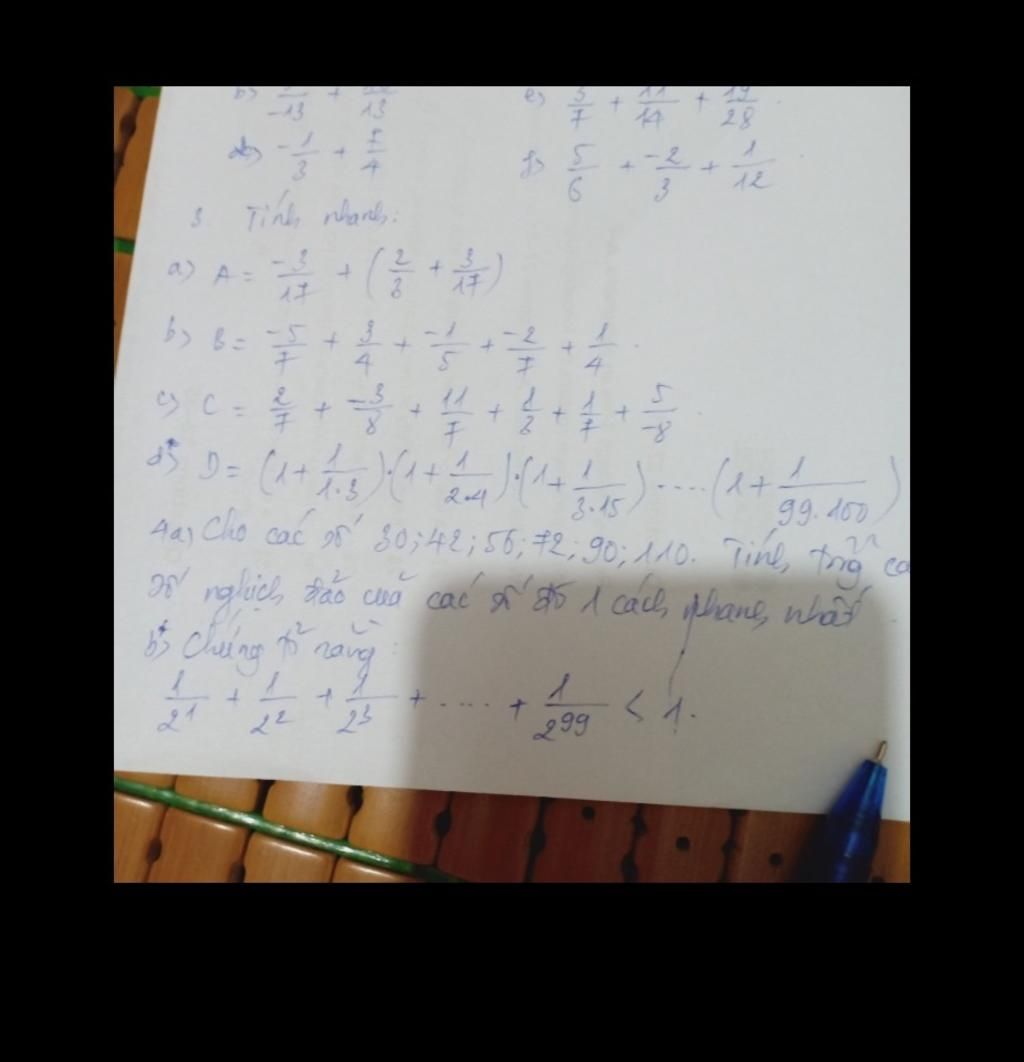 b) /-13 + /13 e) 3/7 + 11/14 + 19/28.
d) -1/3 + 7/4 f) 5/6 + -2/3 + 1/12.
3. Tính nhanh:
a) A = -3/17 + (2/3 + 3/17)
b) B = -5/7 + 3/4 + -1/5 + -2/7 + 1/4.
c) C = 2/7 + -3/8 + 11/7 + 1/3 + 1/7 + 5/-8.
d*) D = (1 + 1/1.3).(1 + 1/2.4).(1 + 1/3.15)....(1 + 1/99.100)
4a) Cho các số 30; 42; 56; 72; 90; 110. Tính tổng cá
số nghịch đảo của các số đó 1 cách nhanh nhất.
b*) Chứng tỏ rằng:
1/2¹ + 1/2² + 1/2³ + .... + 1/2⁹⁹ < 1.